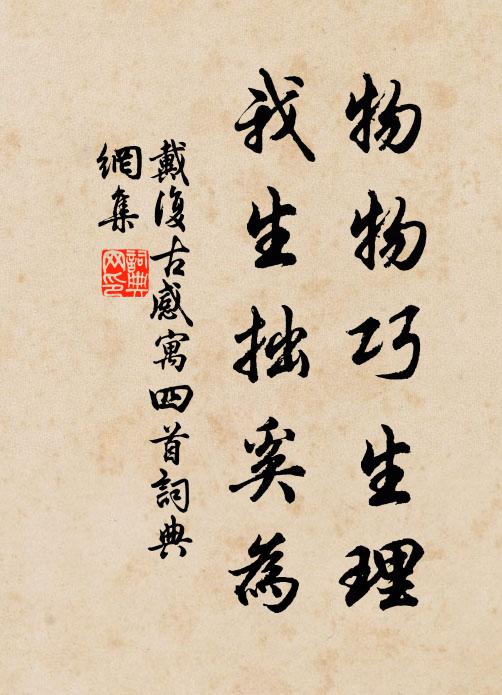 物物巧生理
我生拙奚為
戴復古感寓四首詞典
網集
詞典网印